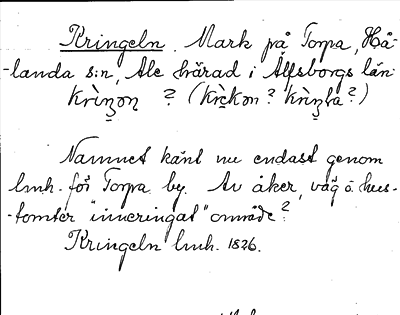 Kringeln. Mark på Torpa, Hå-
-landa s:n, Ale härad i Älfsborgs län.
Krìŋon ? (Krìkon? Krìŋla?)
Namnet känt nu endast genom
lmh. för Torpa by. Av åker, väg o. hus-
-tomter "inneringat" område?
Kringeln lmh. 1826.